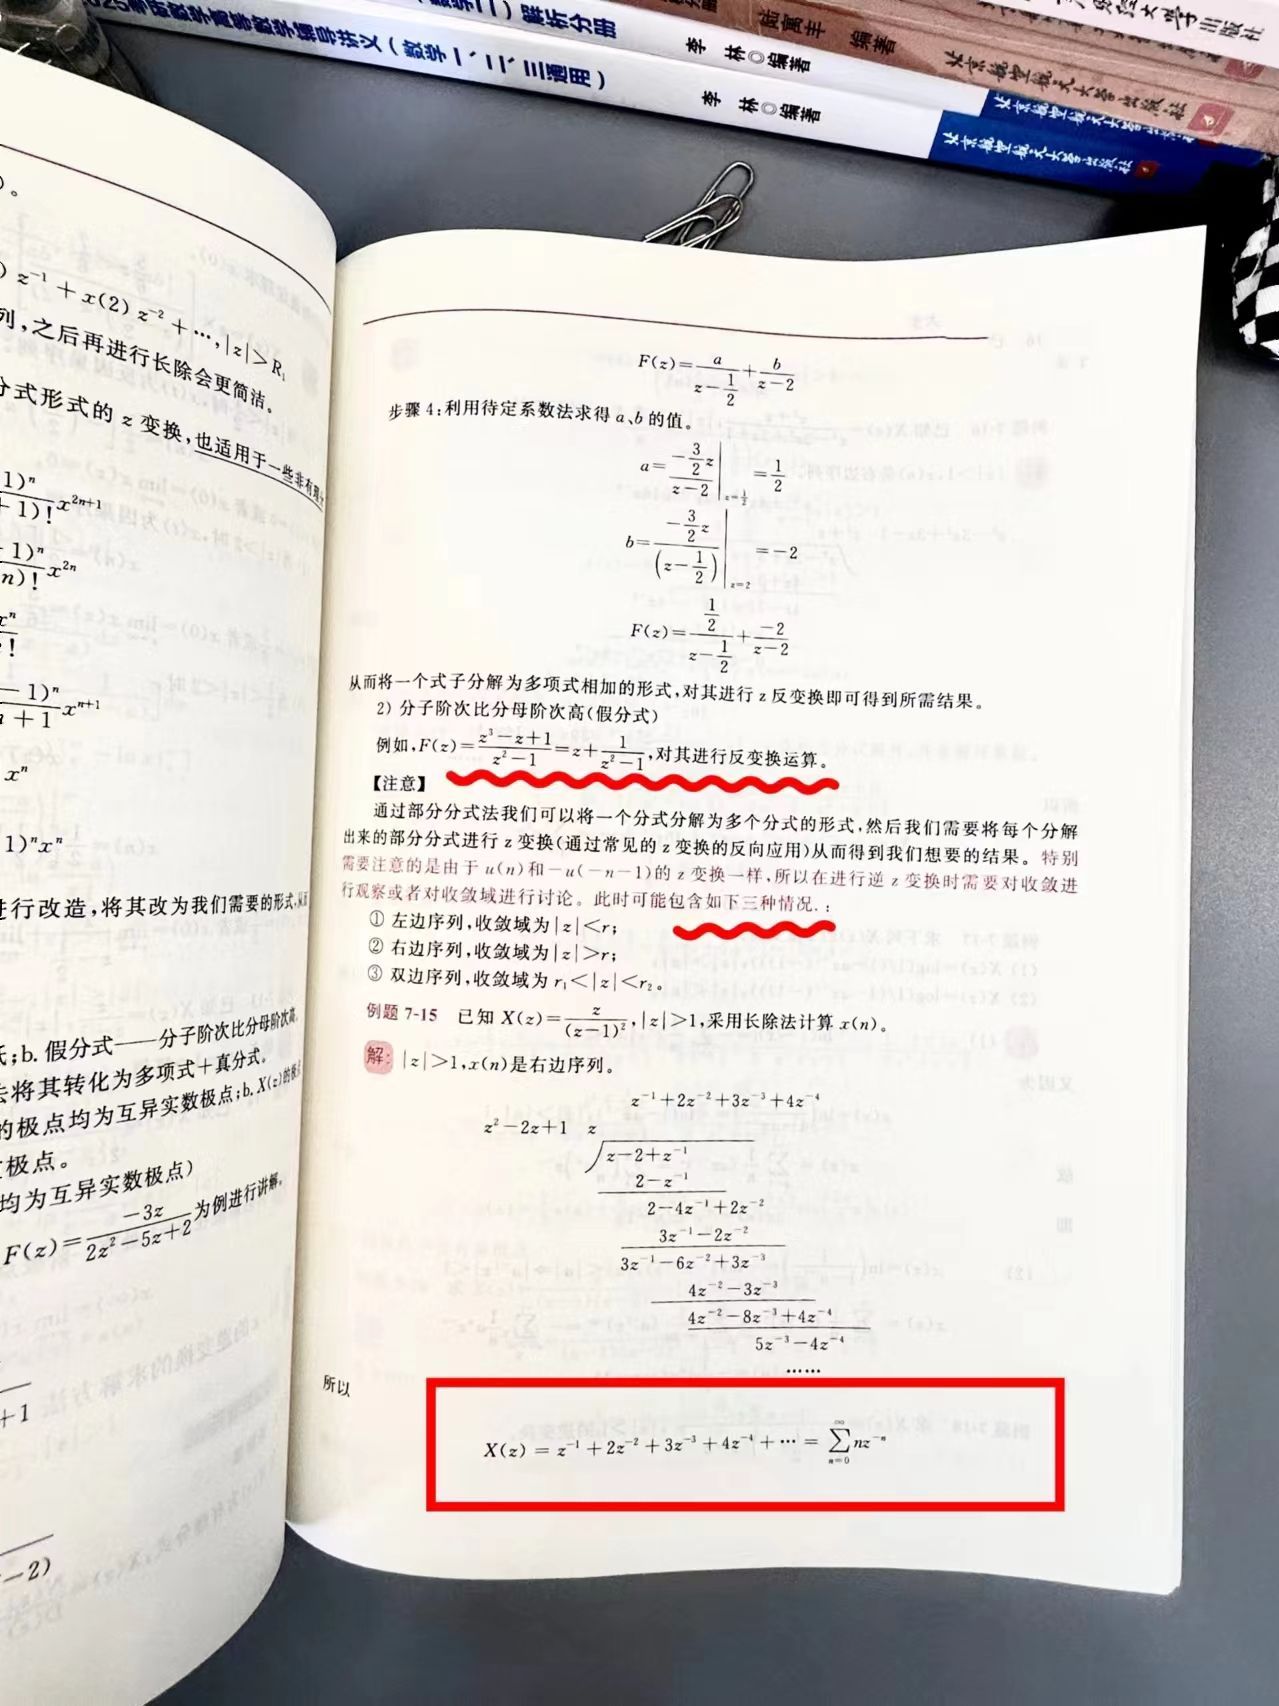 考研数学高等数学辅导讲义(数学一、二、三通用)
李 林◎编著
北京航空航天大学出版社
解析分册
李 林◎编著
北京航空航天大学出版社
编著
北京航空航天大学出版社
大学出版社
z⁻¹+x(2)z⁻²+…,|z|>R₁
列,之后再进行长除会更简洁。
分式形式的z变换,也适用于一些非有理
x²ⁿ⁺¹
x²ⁿ
xⁿ⁺¹
xⁿ
1)ⁿxⁿ
进行改造,将其改为我们需要的形式,从而
b.假分式——分子阶次比分母阶次高
去将其转化为多项式+真分式。
的极点均为互异实数极点;b.X(z)的极点
极点。
均为互异实数极点)
F(z)=-3z/(2z²-5z+2)为例进行讲解。
+1
-2)
F(z)=a/(z-1/2)+b/(z-2)
步骤4:利用待定系数法求得a、b的值。
a=(-3/2 z)/(z-2)|z=1/2=1/2
b=(-3/2 z)/(z-1/2)|z=2=-2
F(z)=(1/2)/(z-1/2)+(-2)/(z-2)
从而将一个式子分解为多项式相加的形式,对其进行z反变换即可得到所需结果。
2) 分子阶次比分母阶次高(假分式)
例如,F(z)=(z³-z+1)/(z²-1)=z+1/(z²-1),对其进行反变换运算。
【注意】
通过部分分式法我们可以将一个分式分解为多个分式的形式,然后我们需要将每个分解
出来的部分分式进行z变换(通过常见的z变换的反向应用)从而得到我们想要的结果。特别
需要注意的是由于u(n)和-u(-n-1)的z变换一样,所以在进行逆z变换时需要对收敛进
行观察或者对收敛域进行讨论。此时可能包含如下三种情况.:
① 左边序列,收敛域为|z|<r;
② 右边序列,收敛域为|z|>r;
③ 双边序列,收敛域为r₁<|z|<r₂。
例题7-15 已知X(z)=z/(z-1)²,|z|>1,采用长除法计算x(n)。
解: |z|>1,x(n)是右边序列。
z⁻¹+2z⁻²+3z⁻³+4z⁻⁴
z²-2z+1 z
z-2+z⁻¹
2-z⁻¹
2-4z⁻¹+2z⁻²
3z⁻¹-2z⁻²
3z⁻¹-6z⁻²+3z⁻³
4z⁻²-3z⁻³
4z⁻²-8z⁻³+4z⁻⁴
5z⁻³-4z⁻⁴
……
所以
X(z)=z⁻¹+2z⁻²+3z⁻³+4z⁻⁴+…=∑(n=0→∞)nz⁻ⁿ